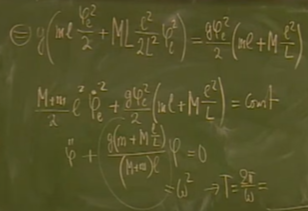 = g(ml φ_e²/2 + ML ℓ²/2L² φ_e²) = gφ_e²/2 (ml + M ℓ²/L)
M+m/2 ℓ² φ̇_e² + gφ_e²/2 (ml + M ℓ²/L) = const
φ̈ + g(m + M ℓ/L)/(M+m)ℓ φ = 0
= ω² → T = 2π/ω =